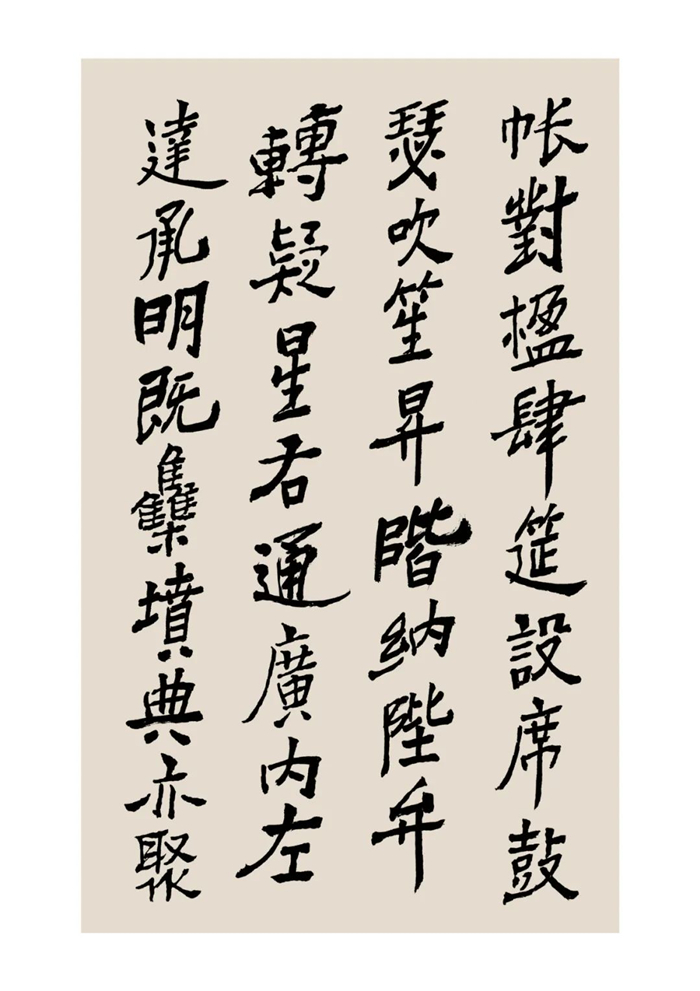 帐對楹肆筵設席鼓
瑟吹笙昇階納陛弁
轉疑星右通廣内左
達承明既雧墳典亦聚